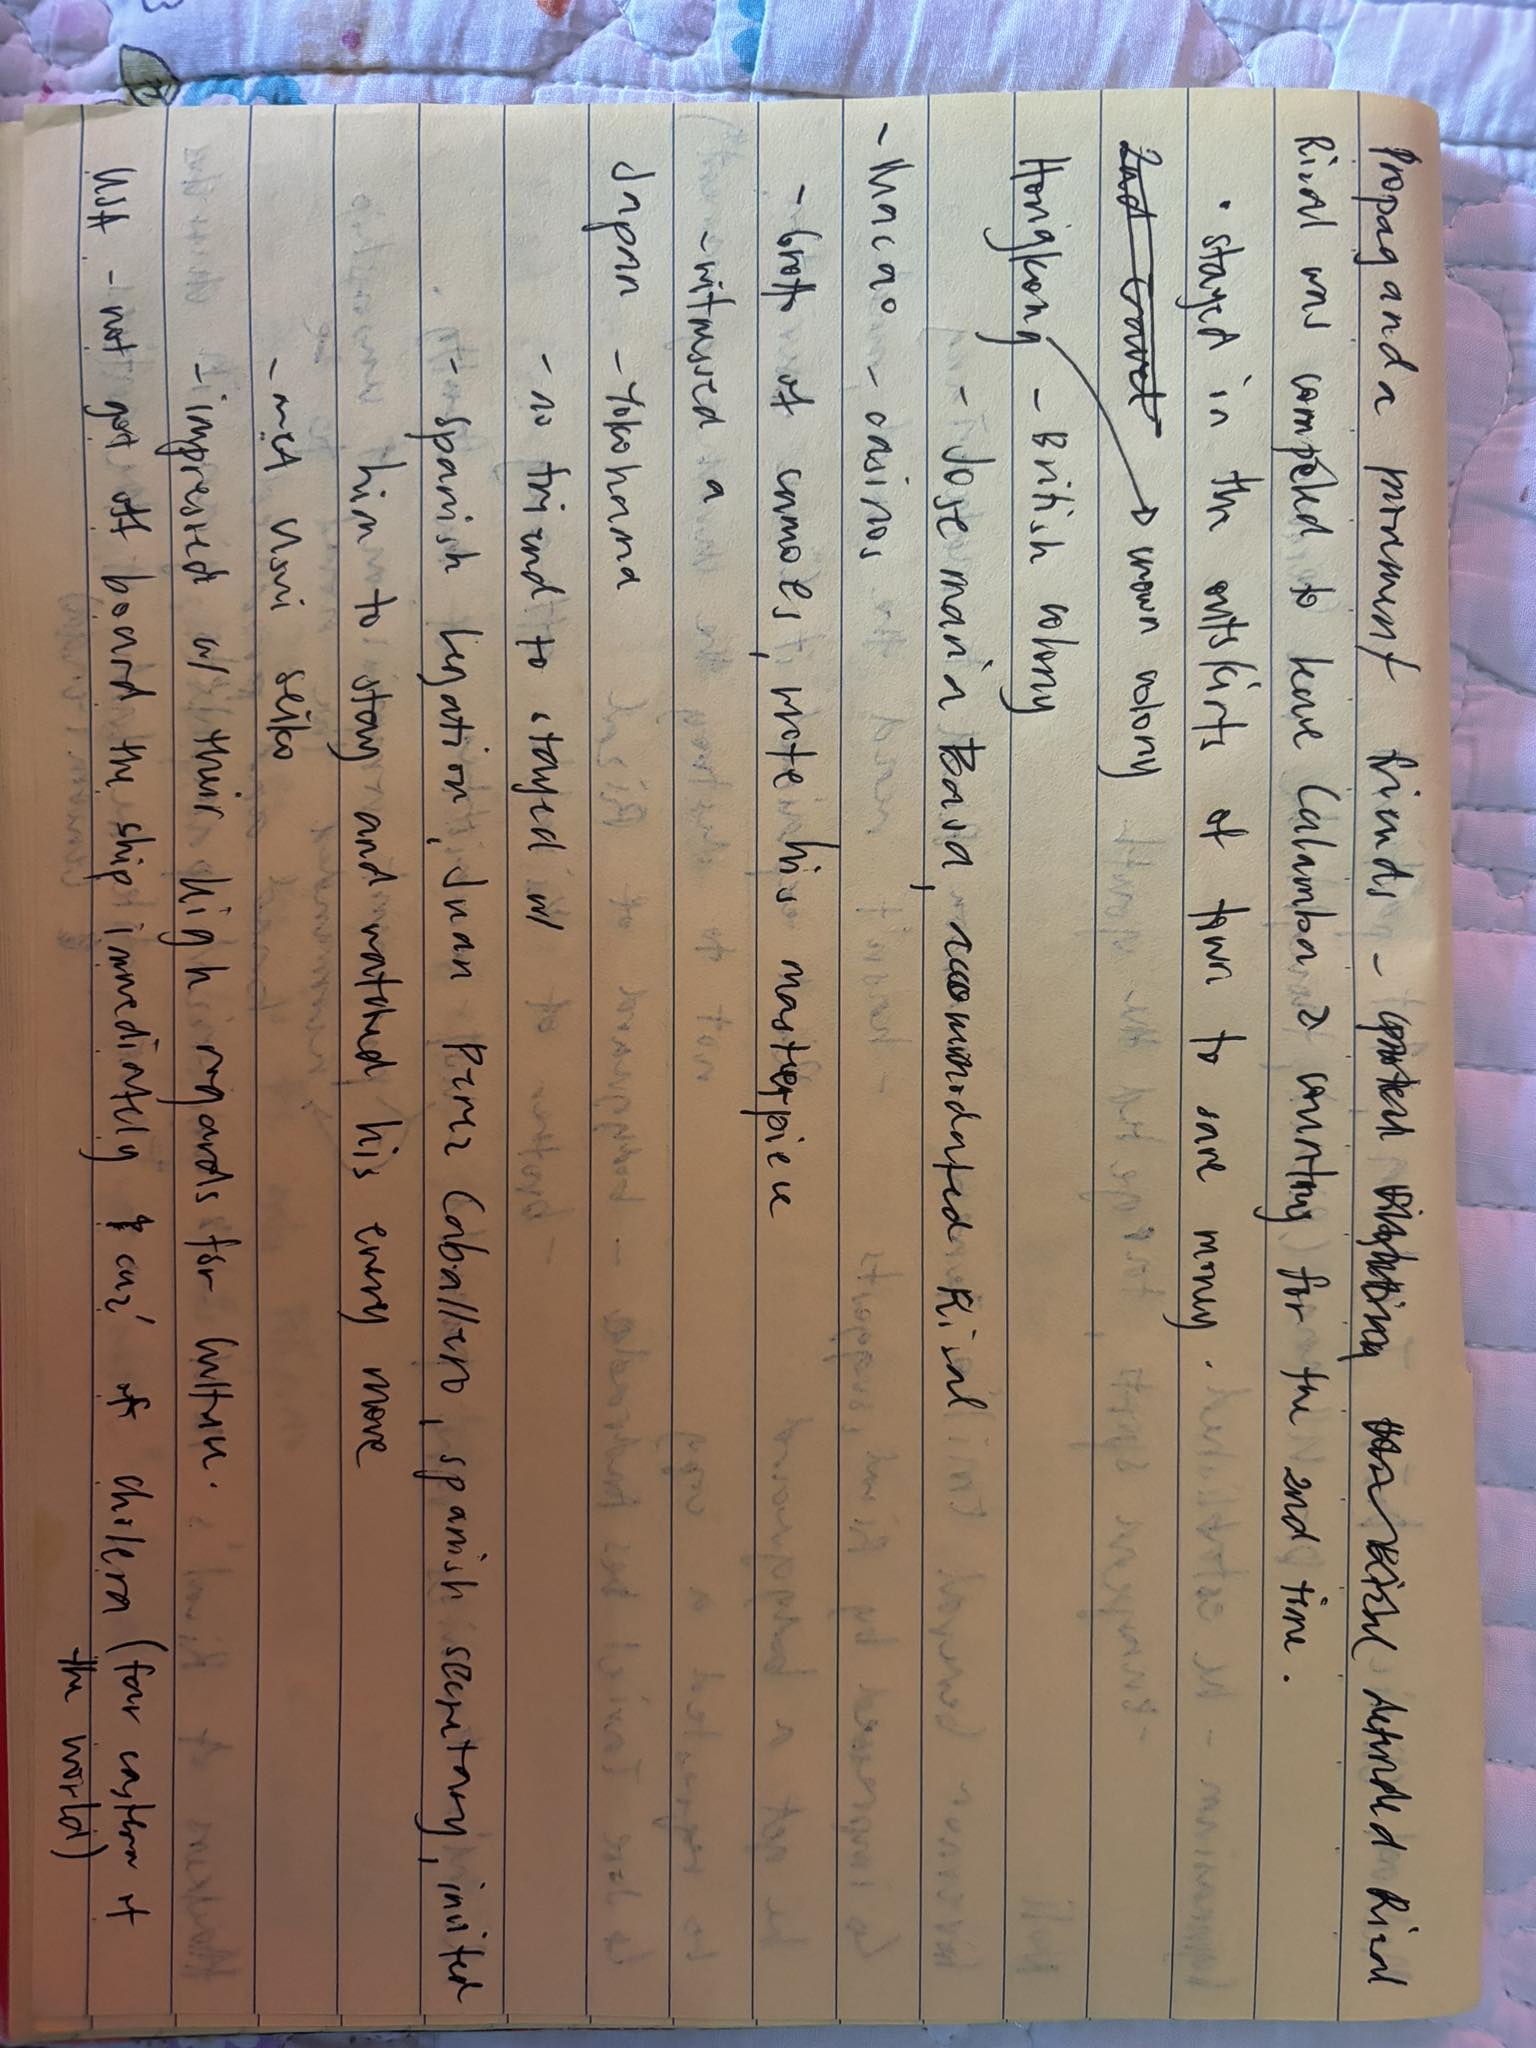 Propaganda movement friends - defended Rizal
Rizal was compeled to leave Calamba & country for the 2nd time.
• stayed in the outskirts of town to save money.
2nd travel → crown colony
Hongkong - British colony
- Jose maria Basa, accommodated Rizal
- Macao - casinos
- Grotto of camoes, wrote his masterpiece
- witnessed a
Japan - Yokohama
- no friend to stayed w/
- spanish Legation, Juan Perez Caballero, spanish secretary, invited
him to stay and watched his every move
- met Usui Seiko
- impressed w/ their high regards for culture.
USA - not got off board the ship immediately cuz' of cholera (far eastern of
the world)